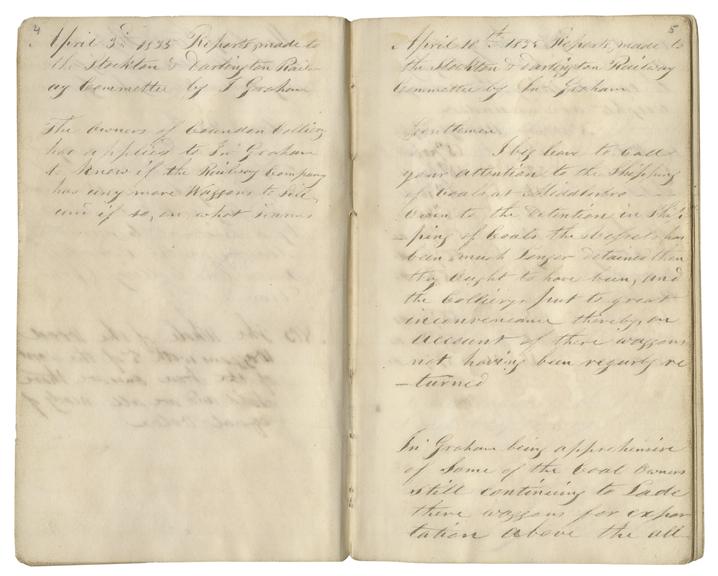 4
April 3rd 1835 Reports made to
the Stockton & Darlington Rail-
way Committee by J Graham
The Owners of Coundon Colliery
has applied to Jn Graham
to know if the Railway Company
has any more Waggons to Sell
and if so, on what terms
5
April 10th 1835 Reports made to
the Stockton & Darlington Railway
Committee by Jn Graham
Gentlemen
I beg leave to Call
your attention to the Shipping
of Coals at Middlesbro
Owen to the detention in Ship
-ping of Coals the Vessels has
been much Longer detained than
they ought to have been, and
the Collierys put to great
inconvenience thereby, on
account of there waggons
not having been regurly re
-turned
Jn Graham being apprehensive
of Some of the Coal Owners
still continuing to Lade
there waggons for expor
tation above the all